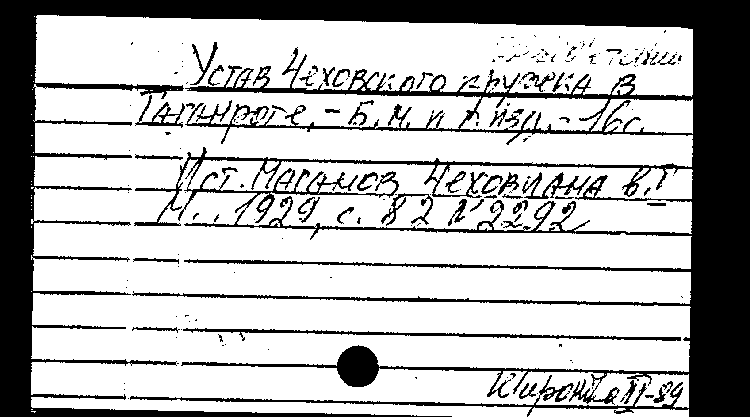 Устав Чеховского кружка в
Таганроге. - Б. м. и г. изд. - 16 с.
Ист. Масанов Чеховиана в. I
М., 1929, с. 82 № 2292
III-89